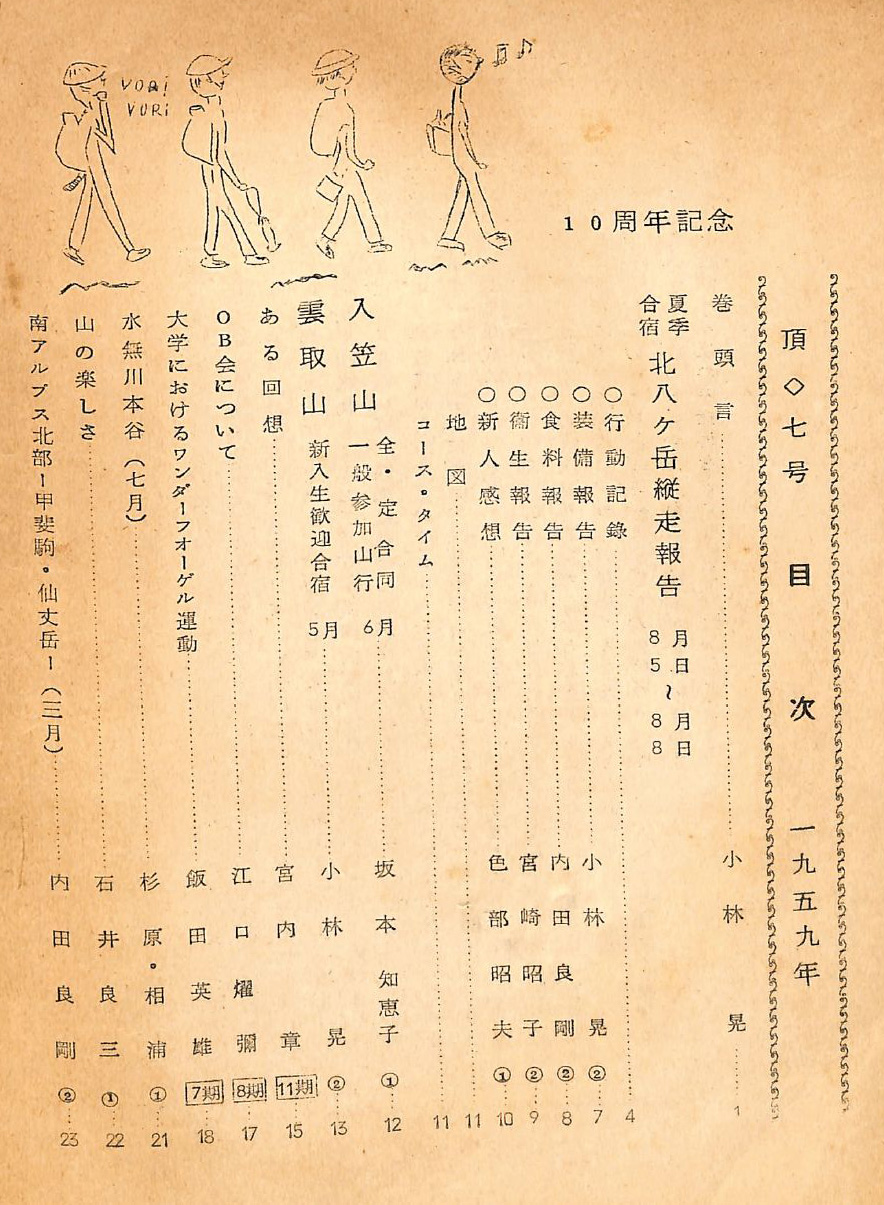 VORi
VURi
10周年記念
頂◇七号 目次 一九五九年
巻頭言……小林 晃……1
夏季合宿 北八ケ岳縦走報告 8月5日~8月8日
○行動記録……4
○装備報告……小林 晃②……7
○食料報告……内田良剛②……8
○衛生報告……宮崎昭子②……9
○新人感想……色部昭夫①……10
地図……11
コース・タイム……11
入笠山 全・定合同一般参加山行 6月……坂本知恵子①……12
雲取山 新入生歓迎合宿 5月……小林 晃②……13
ある回想……宮内 章 11期……15
OB会について……江口燿彌 8期……17
大学におけるワンダーフオーゲル運動……飯田英雄 7期……18
水無川本谷(七月)……杉原・相浦①……21
山の楽しさ……石井良三①……22
南アルプス北部ー甲斐駒・仙丈岳ー(三月)……内田良剛②……23